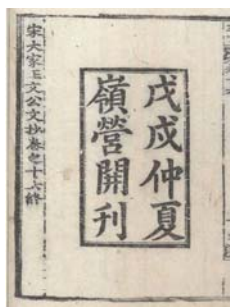 戊戌仲夏
嶺營開刊
宋大家王文公文抄卷之十六終